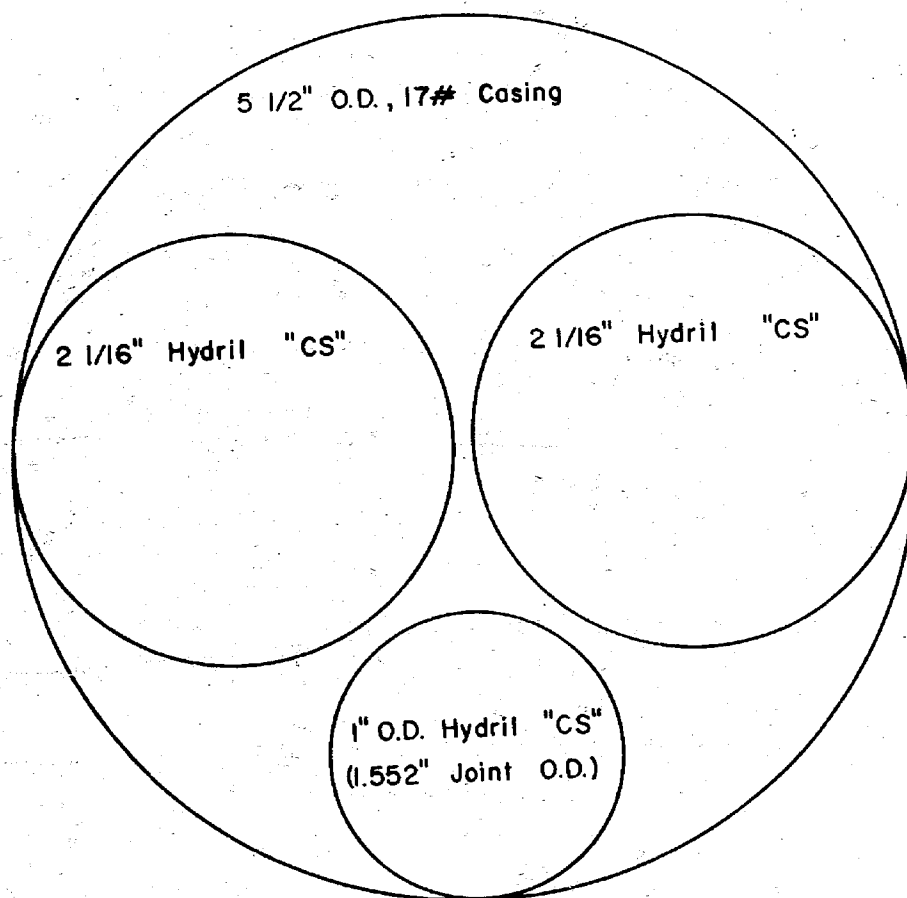 5 1/2" O.D., 17# Casing
2 1/16" Hydril "CS"
2 1/16" Hydril "CS"
1" O.D. Hydril "CS"
(1.552" Joint O.D.)